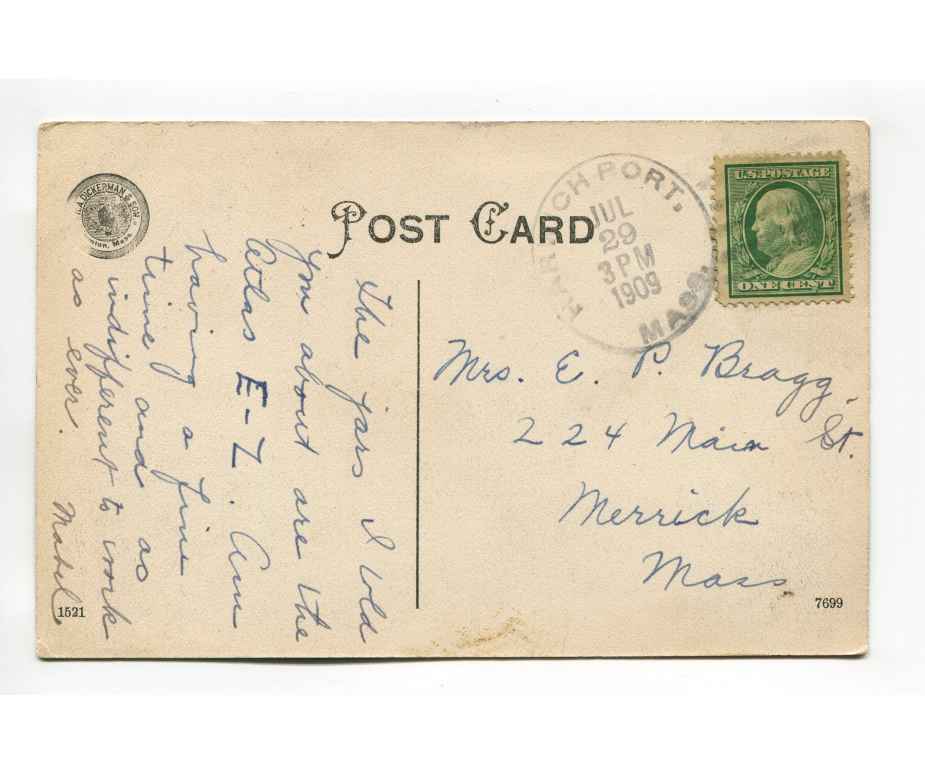 H.A. DICKERMAN & SON
Taunton, Mass.
POST CARD
HARWICH PORT,
MASS.
JUL
29
3 PM
1909
U.S. POSTAGE
ONE CENT
The jars I told
you about are the
Atlas E-Z. Am
having a fine
time and as
indifferent to work
as ever. Mabel
Mrs. E. P. Bragg,
224 Main St.
Merrick
Mass
1521
7699